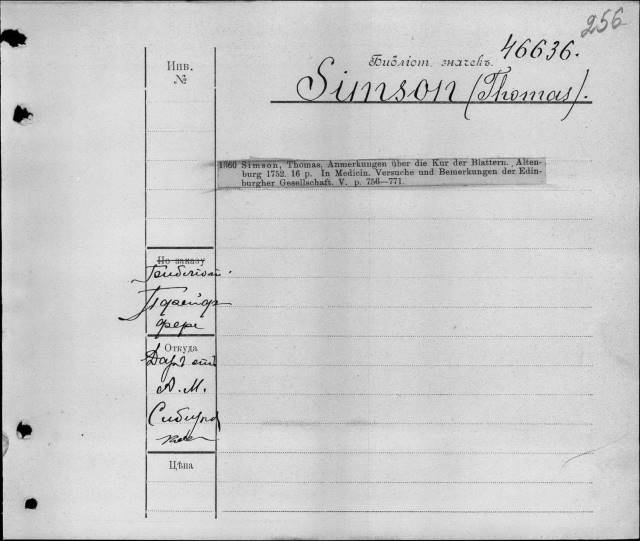 256
Библіот. значекъ.
46636.
Simson (Thomas).
Инв.
№
1360 Simson, Thomas, Anmerkungen über die Kur der Blattern. Alten-
burg 1752. 16 p. In Medicin. Versuche und Bemerkungen der Edin-
burgher Gesellschaft. V. p. 756—771.
По заказу
Библіот.
Пфейф
фера
Откуда
Даръ отъ
А. М.
Цѣна